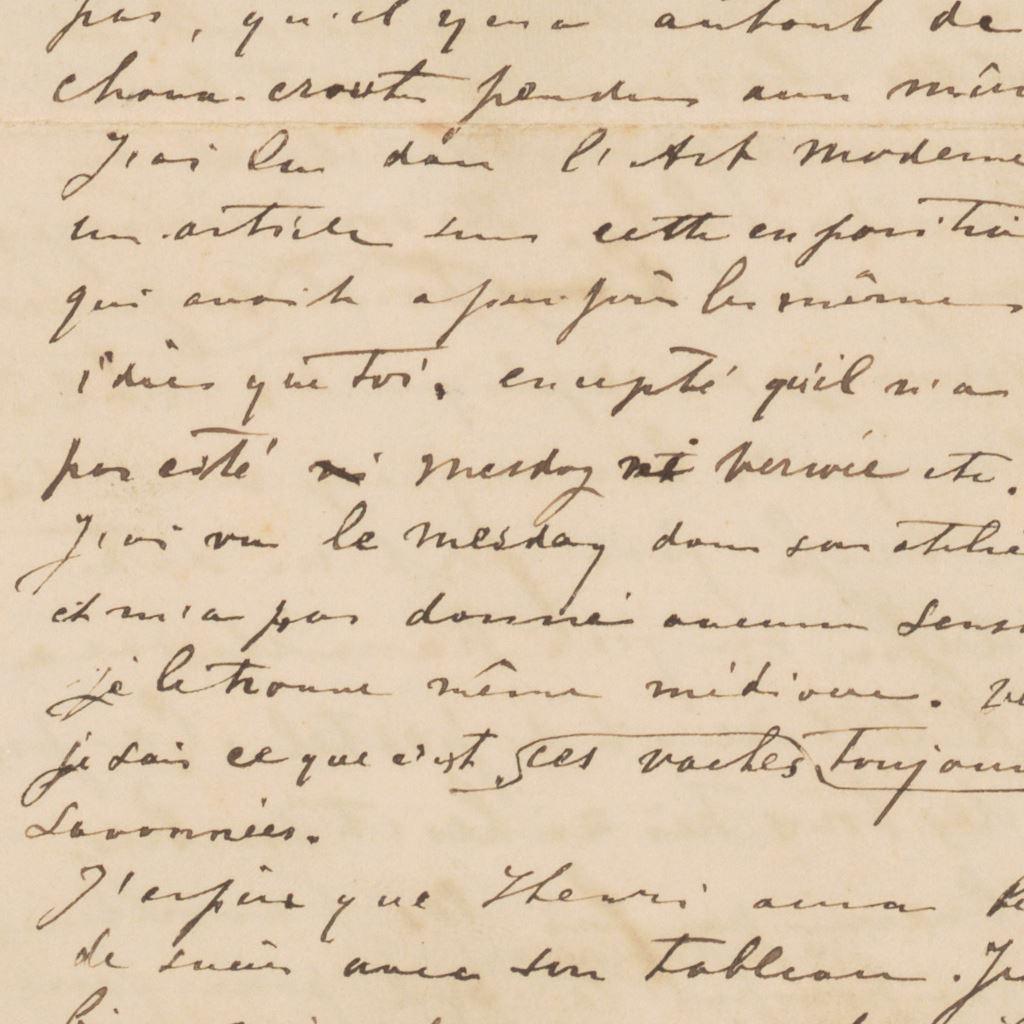 pas, qu'il y en a autant de
choux-croute pendus aux mûr
J'ai lu dans l'Art Moderne
un article sur cette exposition
qui avait à peu près les mêmes
idées que toi, excepté qu'il n'a
pas cité ni Mesdag ni Verwée etc.
J'ai vu le Mesdag dans son atelie
et m'a pas donné aucune sens
je le trouve même médiocre. Ve
je sais ce que c'est ces vaches toujours
savonnées.
J'espère que Henri aura
de succès avec son tableau. Je